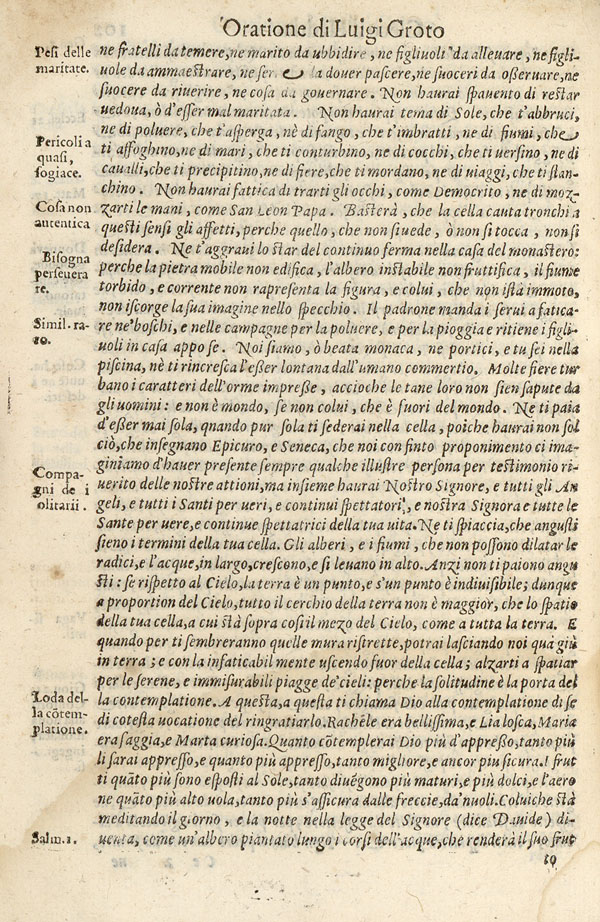 Oratione di Luigi Groto
Pesi delle
maritate.
ne fratelli da temere, ne marito da ubbidire, ne figliuoli da alleuare, ne figli-
uole da ammaestrare, ne ser da douer pascere, ne suoceri da oßeruare, ne
suocere da riuerire, ne cosa da gouernare. Non haurai spauento di restar
uedoua, ò d'esser mal maritata. Non haurai tema di Sole, che t'abbruci,
Pericoli a
quasi,
fogiace.
ne di poluere, che t'asperga, nè di fango, che t'imbratti, ne di fiumi, che
ti affoghino, ne di mari, che ti conturbino, ne di cocchi, che ti uersino, ne di
caualli, che ti precipitino, ne di fiere, che ti mordano, ne di uiaggi, che ti stan-
chino. Non haurai fattica di trarti gli occhi, come Democrito, ne di moz-
Cosa non
autentica
zarti le mani, come San Leon Papa. Basterà, che la cella cauta tronchi a
questi sensi gli affetti, perche quello, che non si uede, ò non si tocca, non si
desidera. Ne t'aggraui lo star del continuo ferma nella casa del monastero:
Bisogna
perseuera
re.
perche la pietra mobile non edifica, l'albero instabile non fruttifica, il fiume
torbido, e corrente non rapresenta la figura, e colui, che non istà immoto,
non iscorge la sua imagine nello specchio. Il padrone manda i serui a fatica-
Simil. ra-
ro.
re ne' boschi, e nelle campagne per la poluere, e per la pioggia e ritiene i figli-
uoli in casa appo se. Noi siamo, ò beata monaca, ne portici, e tu sei nella
piscina, nè ti rincresca l'eßer lontana dall'umano commertio. Molte fiere tur
bano i caratteri dell'orme impreße, accioche le tane loro non sien sapute da
gli uomini: e non è mondo, se non colui, che è fuori del mondo. Ne ti paia
d'eßer mai sola, quando pur sola ti sederai nella cella, poiche haurai non sol
ciò, che insegnano Epicuro, e Seneca, che noi con finto proponimento ci ima-
giniamo d'hauer presente sempre qualche illustre persona per testimonio ri-
Compa-
gni de i
olitarii.
uerito delle nostre attioni, ma insieme haurai Nostro Signore, e tutti gli An
geli, e tutti i Santi per ueri, e continui spettatori, e nostra Signora e tutte le
Sante per uere, e continue spettatrici della tua uita. Ne ti spiaccia, che angusti
sieno i termini della tua cella. Gli alberi, e i fiumi, che non possono dilatar le
radici, e l'acque, in largo, crescono, e si leuano in alto. Anzi non ti paiono angu
sti: se rispetto al Cielo, la terra è un punto, e s'un punto è indiuisibile; dunque
a proportion del Cielo, tutto il cerchio della terra non è maggior, che lo spatio
della tua cella, a cui stà sopra così il mezo del Cielo, come a tutta la terra. E
quando per ti sembreranno quelle mura ristrette, potrai lasciando noi quà giù
in terra; e con la infaticabil mente uscendo fuor della cella; alzarti a spatiar
per le serene, e immisurabili piagge de' cieli: perche la solitudine è la porta del
Loda del-
la cõtem-
platione.
la contemplatione. A questa, a questa ti chiama Dio alla contemplatione di se
di cotesta uocatione del ringratiarlo. Rachele era bellissima, e Lia losca, Maria
era saggia, e Marta curiosa. Quanto cõtemplerai Dio più d'appreßo, tanto più
li sarai appresso, e quanto più appresso, tanto migliore, e ancor piu sicura. I frut
ti quãto più sono esposti al Sole, tanto diuẽgono più maturi, e più dolci, e l'aero
ne quãto più alto uola, tanto più s'assicura dalle freccie, da' nuoli. Colui che stà
meditando il giorno, e la notte nella legge del Signore (dice Dauide) di-
Salm. 1.
uenta, come un'albero piantato lungo i corsi dell'acque, che renderà il suo frut
to